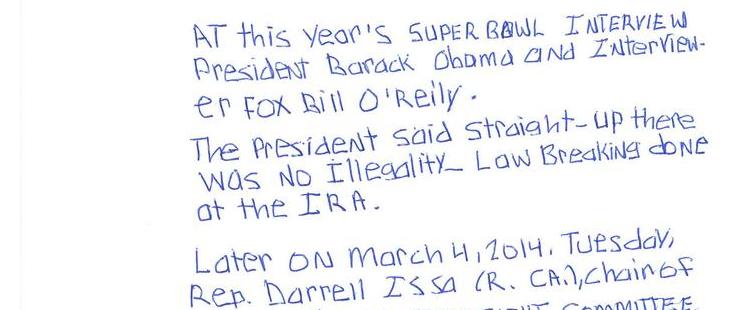 AT this Year's SUPER BOWL INTERVIEW
President Barack Obama and Interview-
er FOX Bill O'Reily.
The President said straight-up there
was NO Illegality- Law Breaking done
at the IRA.
Later ON March 4, 2014, Tuesday,
Rep. Darrell Issa (R. CA.), Chain of
COMMITTEE